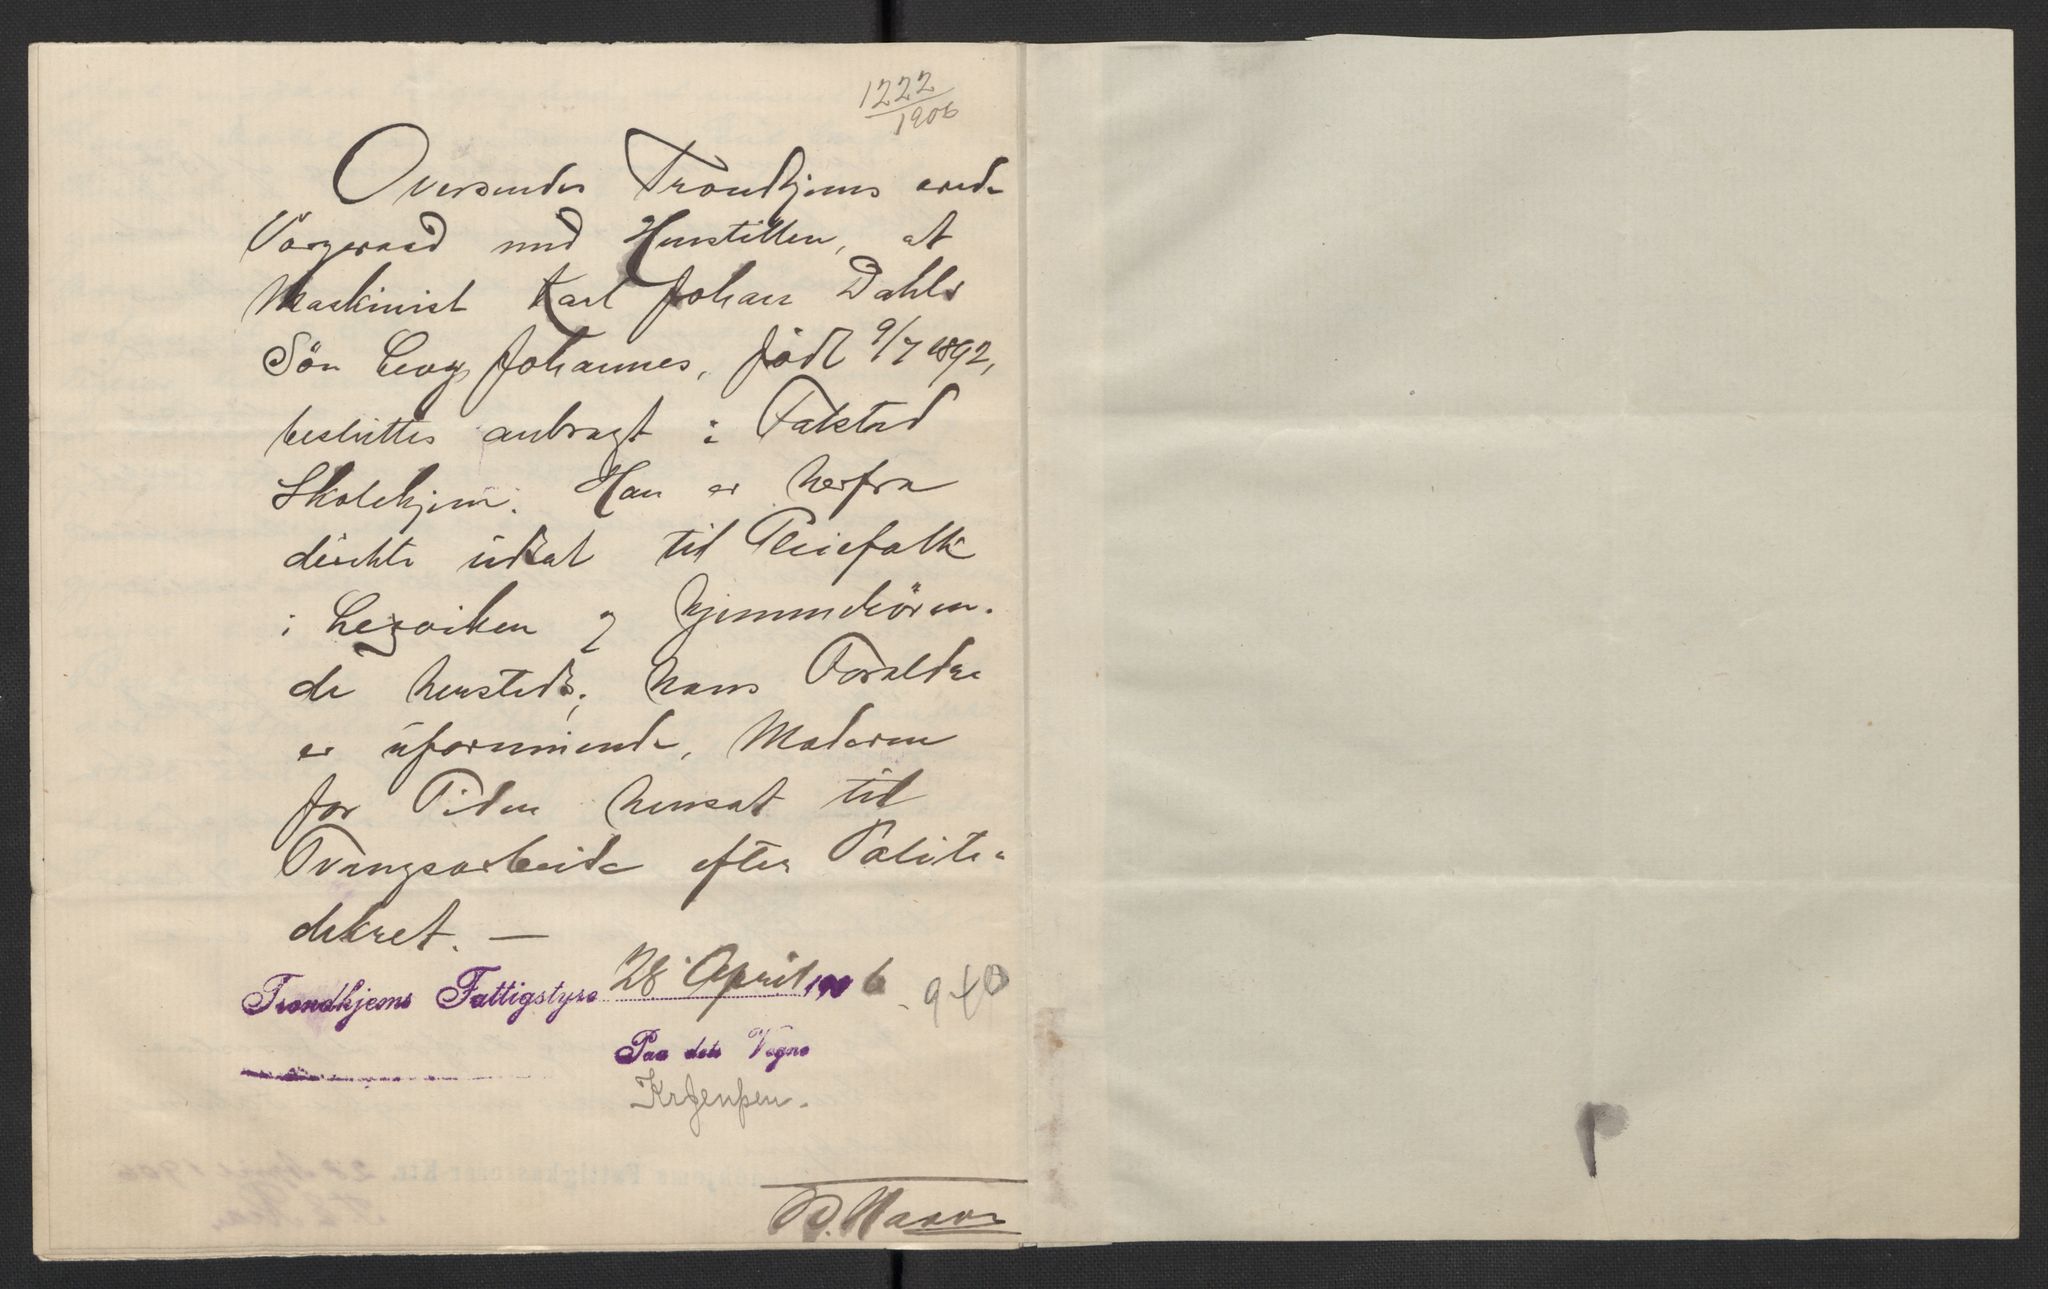 1222
1906
Oversendes Trondhjems ærede
Værgeraad med Henstillen, at
Maskinist Karl Johan Dahls
Sön Georg Johannes, födt 9/7 1892,
besluttes anbragt i Falstad
Skolehjem. Han er herfra
direkte udsat til Pleiefolk
i Lexviken og hjemmehören-
de hersteds; hans Forældre
er uformuende, Moderen
for Tiden hensat til
Tvangsarbeide efter Politi-
dekret. —
Trondhjems Fattigstyre 28 April 1906 940
Paa dets Vegne
Kr Jenssen.